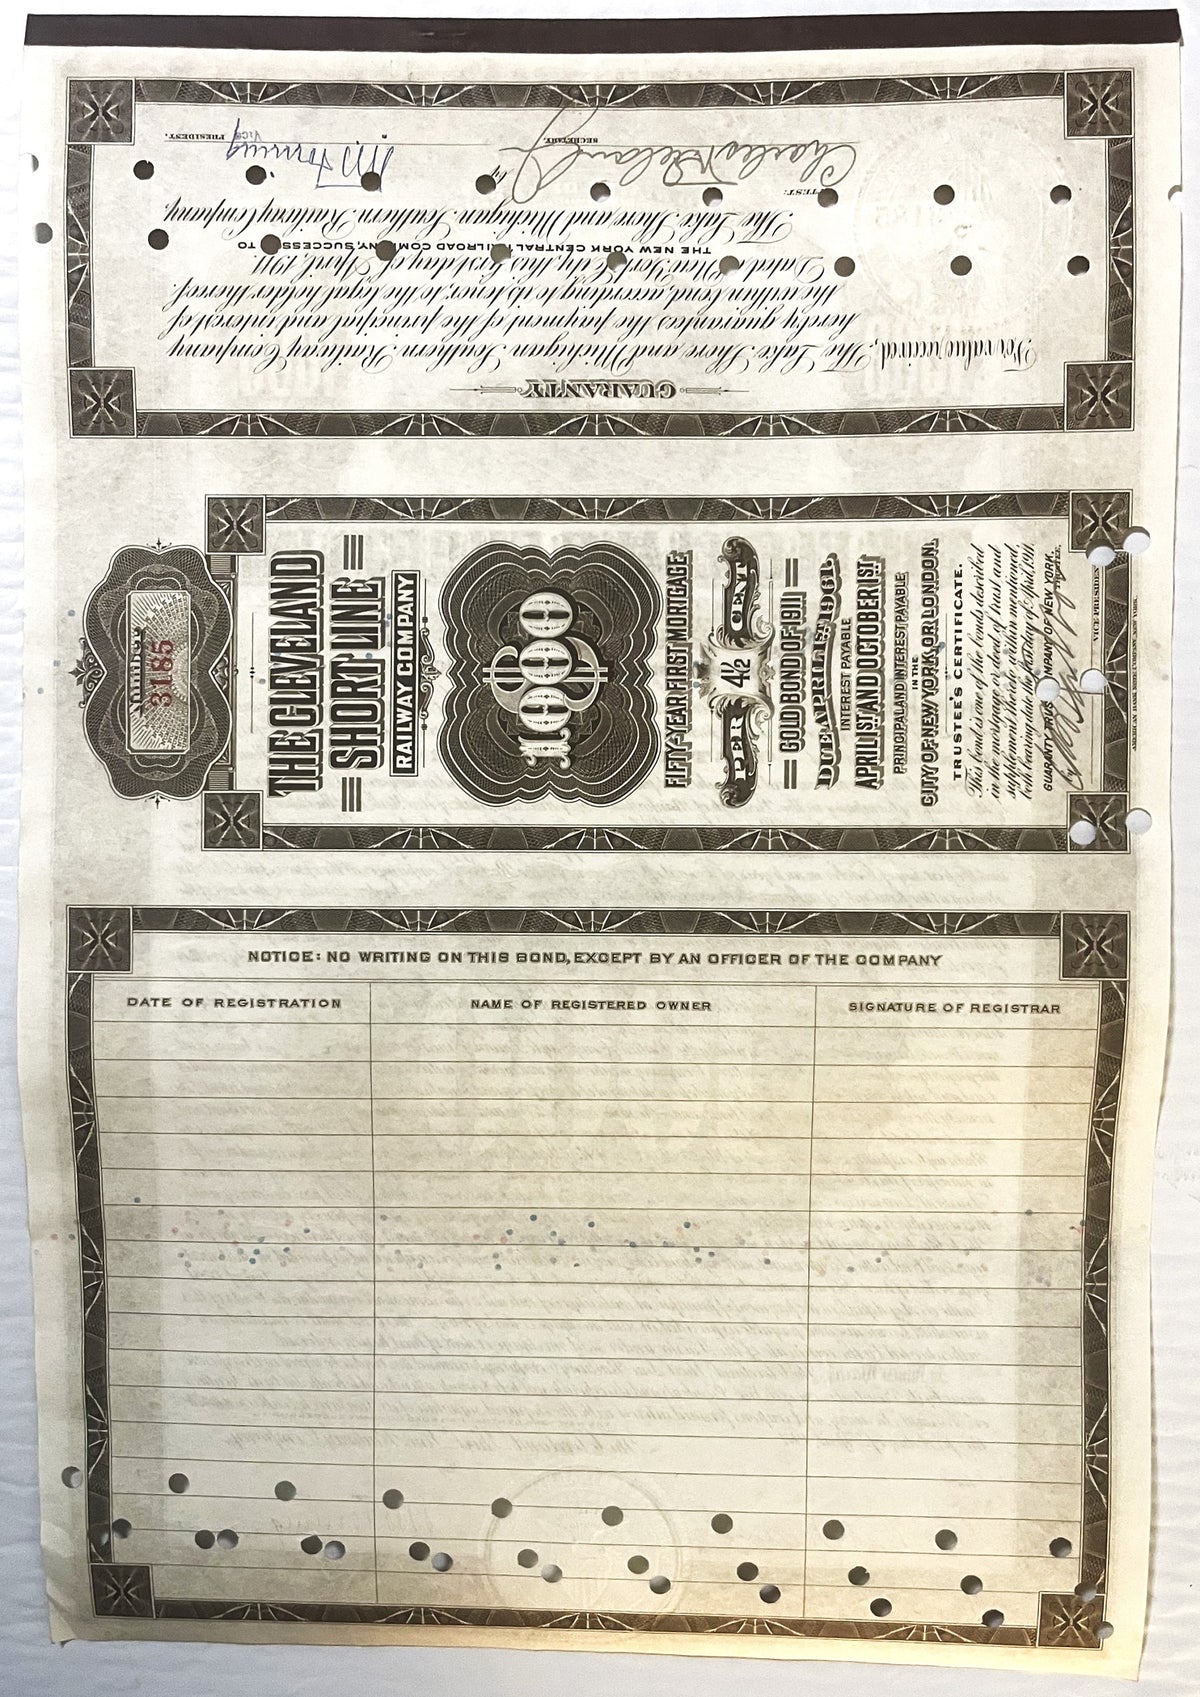 GUARANTY
For value received, The Lake Shore and Michigan Southern Railway Company
hereby guarantees the payment of the principal and interest of
the within bond, according to its tenor, to the legal holder thereof.
Dated New York City, this first day of April, 1911.
THE NEW YORK CENTRAL RAILROAD COMPANY, SUCCESSOR TO
The Lake Shore and Michigan Southern Railway Company,
TEST:
Charles
by
SECRETARY.
VICE PRESIDENT.
Number
3185
THE CLEVELAND
SHORT LINE
RAILWAY COMPANY
$1000
FIFTY-YEAR FIRST MORTGAGE
4½
PER CENT
GOLD BOND OF 1911
DUE APRIL 1, 1961.
INTEREST PAYABLE
APRIL 1ST AND OCTOBER 1ST
PRINCIPAL AND INTEREST PAYABLE
IN THE
CITY OF NEW YORK OR LONDON.
TRUSTEE'S CERTIFICATE.
This bond is one of the bonds described
in the mortgage or deed of trust and
supplement thereto within mentioned,
both bearing date the first day of April, 1911.
GUARANTY TRUST COMPANY OF NEW YORK,
TRUSTEE,
by
VICE PRESIDENT
AMERICAN BANK NOTE COMPANY, NEW YORK.
NOTICE: NO WRITING ON THIS BOND, EXCEPT BY AN OFFICER OF THE COMPANY
DATE OF REGISTRATION NAME OF REGISTERED OWNER SIGNATURE OF REGISTRAR